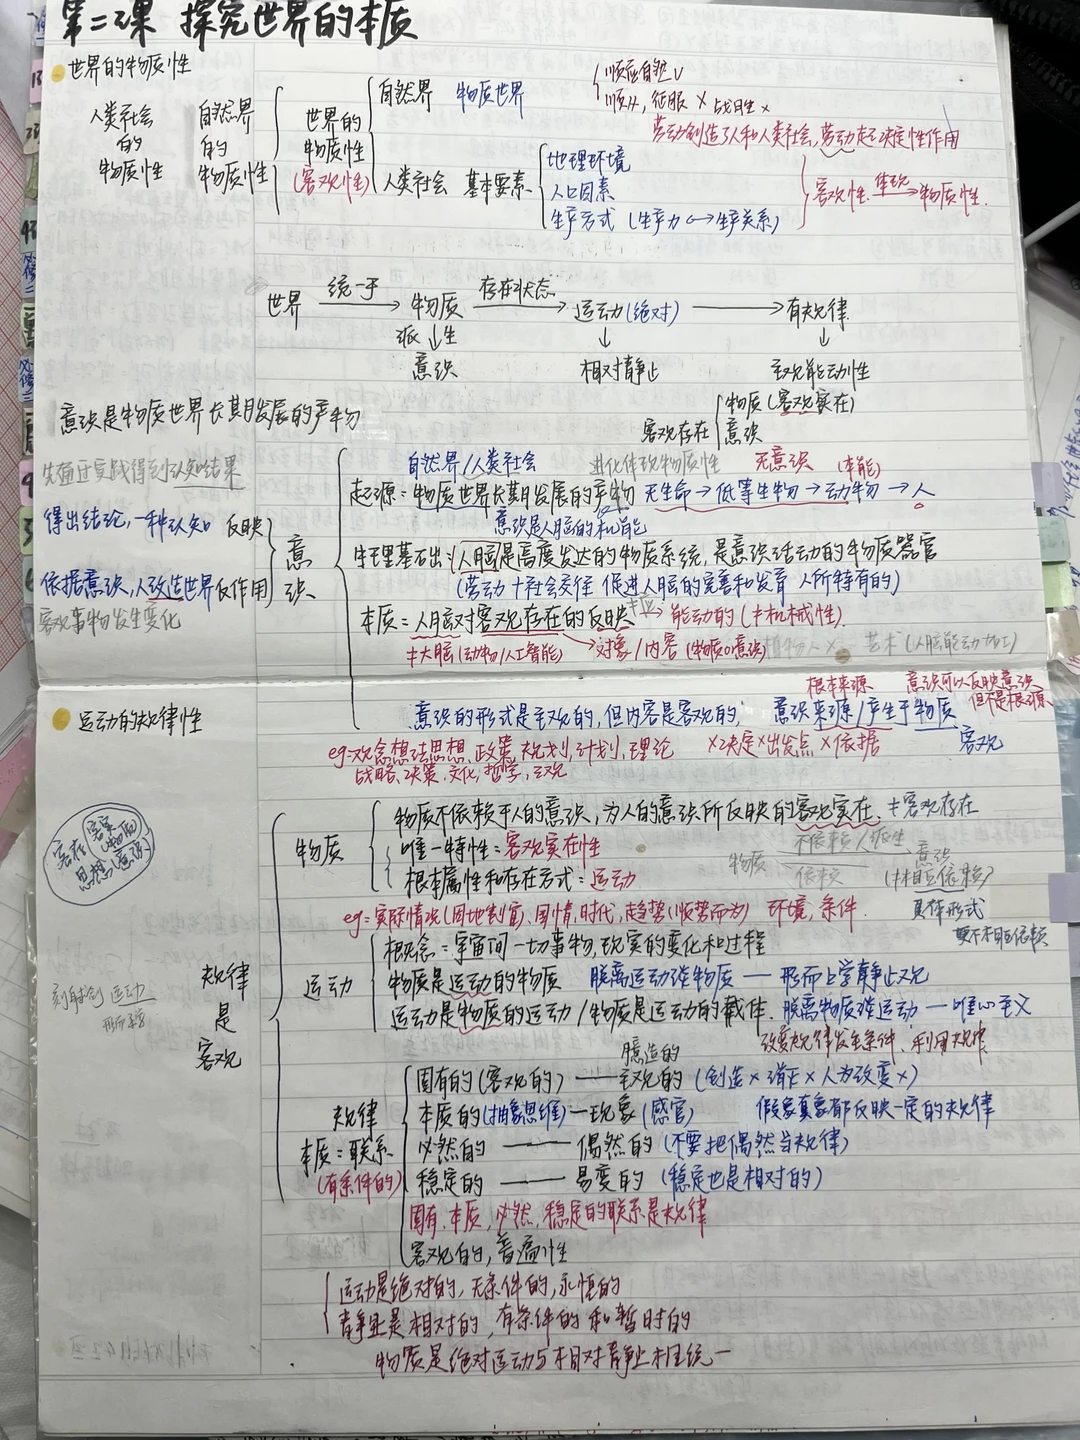 第二课 探究世界的本质
世界的物质性
人类社会的物质性 自然界的物质性
世界的物质性(客观性)
自然界 物质世界
顺应自然√
征服× 战胜×
劳动创造了人和人类社会,劳动起决定性作用
人类社会 基本要素
地理环境
人口因素
生产方式(生产力↔生产关系)
客观性 体现→ 物质性.
世界 统一于→ 物质 存在状态→ 运动(绝对) → 有规律
派↓生 ↓ ↓
意识 相对静止 主观能动性
客观存在
物质(客观实在)
意识
意识是物质世界长期发展的产物
先通过实践得到认知结果
得出结论,一种认知 反映
依据意识,人改造世界 反作用
客观事物发生变化
意识
自然界/人类社会 进化体现物质性 无意识 (本能)
起源:物质世界长期发展的产物 无生命→低等生物→动物→人
意识是人脑的机能
生理基础:人脑是高度发达的物质系统,是意识活动的物质器官
(劳动+社会交往 促进人脑的完善和发育 人所特有的)
本质:人脑对客观存在的反映→能动的(≠机械性).
≠大脑(动物/人工智能) →对象/内容(物质or意识) 植物人× 艺术(人脑能动加工)
根本来源 意识可以反映意识
但不是根源
意识的形式是主观的,但内容是客观的, 意识来源/产生于物质
客观
eg:观念想法思想,政策,规划,计划,理论 ×决定×出发点×依据
战略,决策,文化,哲学,主观
运动的规律性
客存 客实(物质)
思想(意识)
规律是客观
物质
物质不依赖于人的意识,为人的意识所反映的客观实在.≠客观存在
唯一特性:客观实在性
根本属性和存在方式:运动
物质 不依赖 派生 意识
依赖 (≠相互依赖)
eg:实际情况(因地制宜),国情,时代,趋势(顺势而为) 环境,条件.
具体形式
更不相互依赖
运动
概念:宇宙间一切事物,现实的变化和过程
物质是运动的物质 脱离运动谈物质——形而上学静止观
运动是物质的运动/物质是运动的载体.脱离物质谈运动—唯心主义
刻舟求剑 运动
改变规律发生条件,利用规律
臆造的
规律
本质:联系
(有条件的)
固有的(客观的)——主观的(创造×消灭×人为改变×)
本质的(抽象思维)—现象(感官) 假象真象都反映一定的规律
必然的——偶然的(不要把偶然当规律)
稳定的——易变的(稳定也是相对的)
固有,本质,必然,稳定的联系是规律
客观的,普遍性
运动是绝对的,无条件的,永恒的
静止是相对的,有条件的和暂时的
物质是绝对运动与相对静止相统一